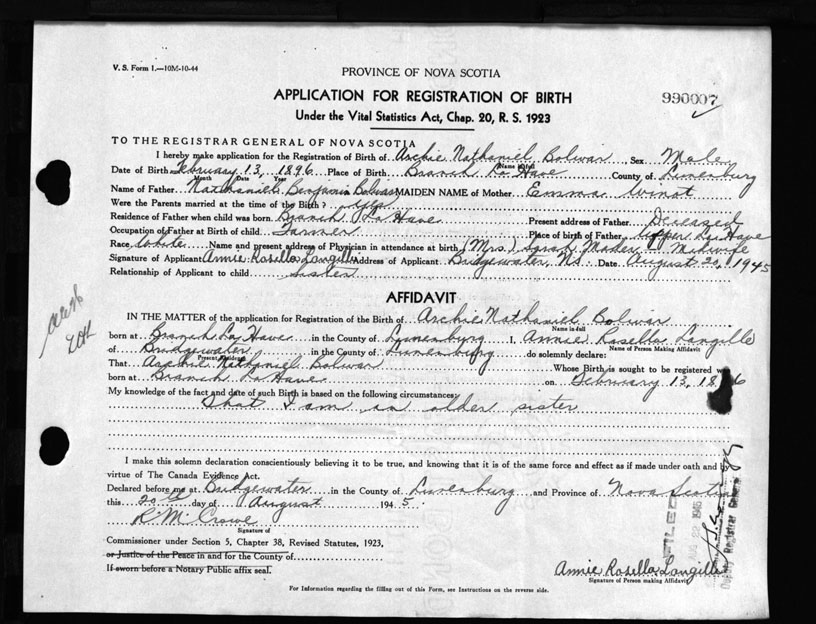 V. S. Form 1.—10M-10-44
PROVINCE OF NOVA SCOTIA
APPLICATION FOR REGISTRATION OF BIRTH
990007
Under the Vital Statistics Act, Chap. 20, R. S. 1923
TO THE REGISTRAR GENERAL OF NOVA SCOTIA
I hereby make application for the Registration of Birth of Archie Nathaniel Bolivar, Sex Male
Name in full
Date of Birth February 13, 1896 Place of Birth Branch La Have County of Lunenburg
Month Date Year
Name of Father Nathaniel Benjamin Bolivar MAIDEN NAME of Mother Emma Winot
Were the Parents married at the time of the Birth? Yes
Residence of Father when child was born Branch La Have Present address of Father Deceased
Occupation of Father at Birth of child Farmer Place of birth of Father Upper La Have
Race White Name and present address of Physician in attendance at birth (Mrs.) Sarah Mader Midwife
Signature of Applicant Annie Rosella Langille Address of Applicant Bridgewater, NS. Date August 20, 1945
Relationship of Applicant to child Sister
AFFIDAVIT
IN THE MATTER of the application for Registration of the Birth of Archie Nathaniel Bolivar
Name in full
born at Branch La Have in the County of Lunenburg I, Annie Rosella Langille
Name of Person Making Affidavit
of Bridgewater in the County of Lunenburg do solemnly declare:
Present Residence
That Archie Nathaniel Bolivar Whose Birth is sought to be registered w
born at Branch La Have on February 13, 18 6
My knowledge of the fact and date of such Birth is based on the following circumstances:
That I am an older sister
I make this solemn declaration conscientiously believing it to be true, and knowing that it is of the same force and effect as if made under oath and by
virtue of The Canada Evidence Act.
Declared before me at Bridgewater in the County of Lunenburg and Province of Nova Scotia
this 20th day of August 1945.
R M Crowe
Signature of
Commissioner under Section 5, Chapter 38, Revised Statutes, 1923,
or Justice of the Peace in and for the County of
If sworn before a Notary Public affix seal.
FILED
AUG 22 1945
Deputy Registrar General
Annie Rosella Langille
Signature of Person making Affidavit
For Information regarding the filling out of this Form, see Instructions on the reverse side.